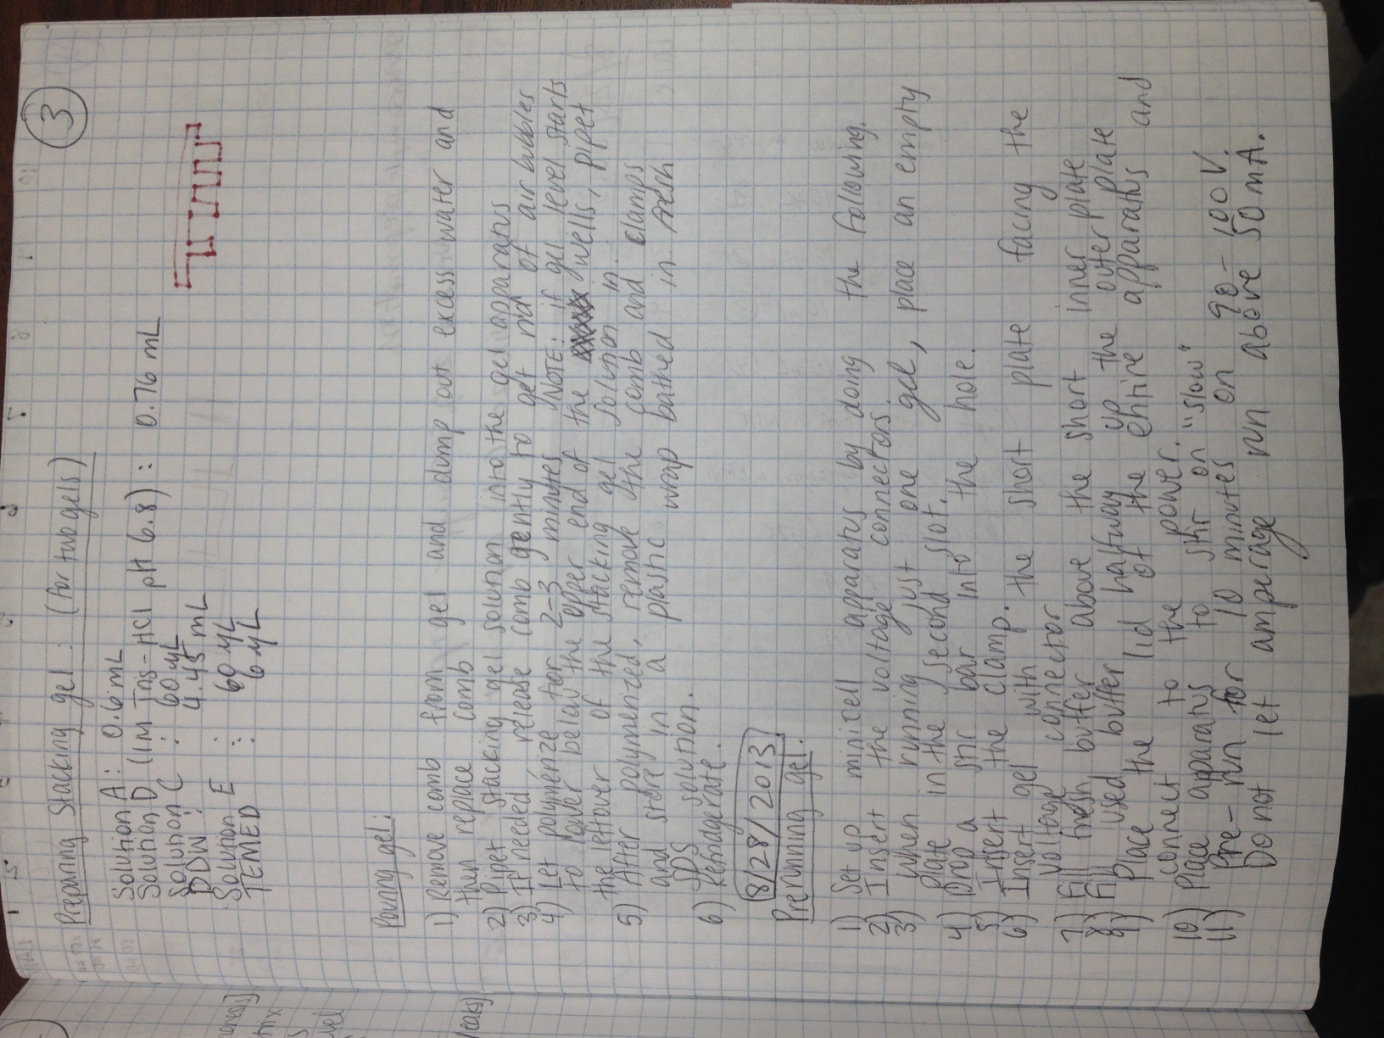 3
Preparing Stacking gel: (for two gels)
Solution A: 0.6 mL
Solution D (1M Tris-HCl pH 6.8): 0.76 mL
Solution C : 60 µL
DDW : 4.45 mL
Solution E : 60 µL
TEMED : 6 µL
Pouring gel:
1) Remove comb from gel and dump out excess water and
then replace comb
2) Pipet stacking gel solution into the gel apparatus
3) If needed release comb gently to get rid of air bubbles
4) Let polymerize for 2-3 minutes NOTE: if gel level starts
to lower below the upper end of the wells, pipet
the leftover of the stacking gel solution in.
5) After polymerized, remove the comb and clamps
and store in a plastic wrap bathed in
SDS solution.
6) Refridgerate.
8/28/2013
Prerunning gel.
1) Set up minicell apparatus by doing the following.
2) Insert the voltage connectors.
3) When running just one gel, place an empty
plate in the second slot.
4) Drop a stir bar into the hole.
5) Insert the clamp.
6) Insert gel with the short plate facing the
voltage connector
7) Fill fresh buffer above the short inner plate
8) Fill used buffer halfway up the outer plate
9) Place the lid of the entire apparatus and
connect to the power.
10) Place apparatus to stir on "slow"
11) Pre-run for 10 minutes on 90-100 V.
Do not let amperage run above 50 mA.